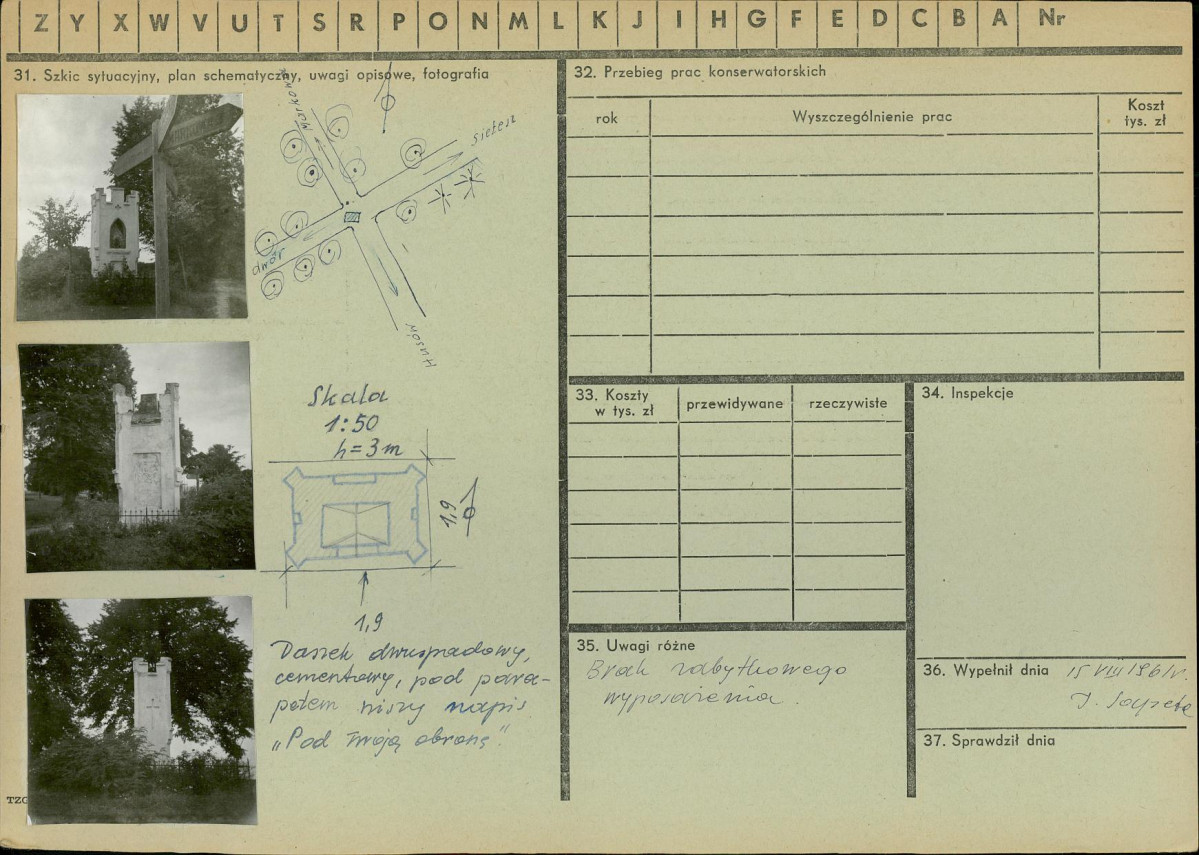 Z Y X W V U T S R P O N M L K J I H G F E D C B A Nr
31. Szkic sytuacyjny, plan schematyczny, uwagi opisowe, fotografia
Markowa
Sietesz
dwór
Husów
Skala
1:50
h=3m
1,9
1,9
Daszek dwuspadowy,
cementowy, pod para-
petem niszy napis
"Pod Twoją obronę".
32. Przebieg prac konserwatorskich
rok
Wyszczególnienie prac
Koszt
tys. zł
33. Koszty
w tys. zł
przewidywane
rzeczywiste
34. Inspekcje
35. Uwagi różne
Brak zabytkowego
wyposażenia.
36. Wypełnił dnia 15 VIII 1961r.
37. Sprawdził dnia
TZG